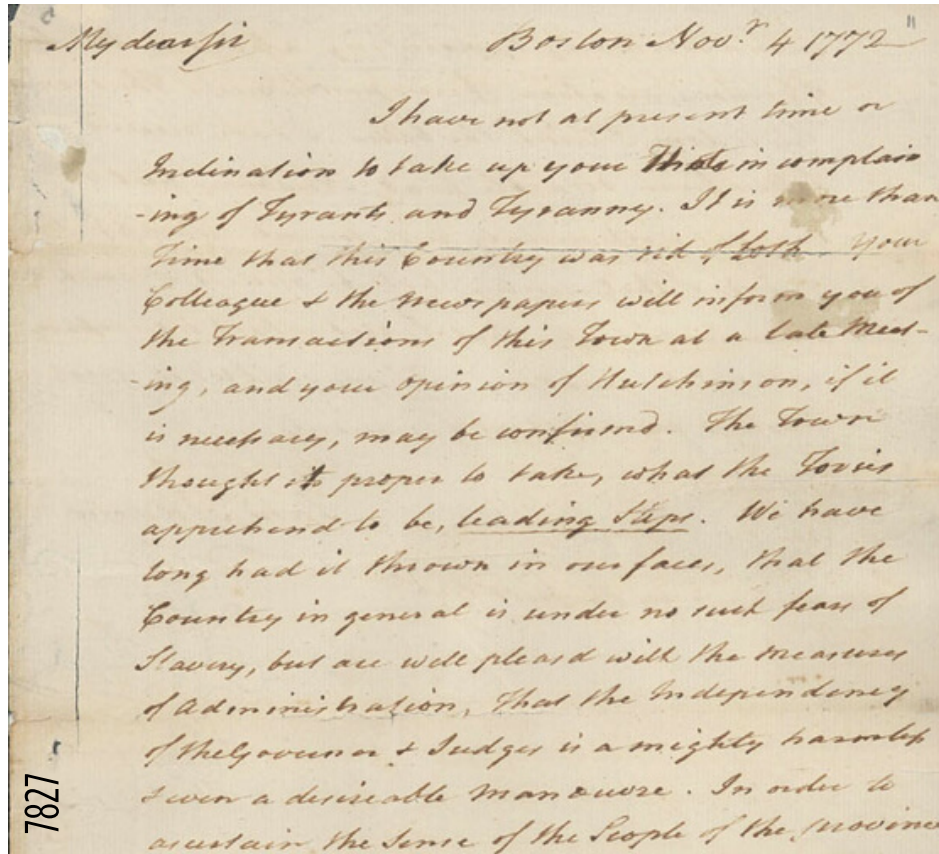 My dear sir Boston Novr 4 1772
I have not at present time or
Inclination to take up your in complain
-ing of Tyrants and Tyranny. It is more than
Time that this Country was rid of both. Your
Colleague & the Newspapers will inform you of
the Transactions of this Town at a late Meet-
-ing, and your opinion of Hutchinson, if it
is necessary, may be confirmd. The Town
thought it proper to take, what the Tories
apprehend to be, leading Steps. We have
long had it thrown in our faces, that the
Country in general is under no such fears of
Slavery, but are well pleasd with the Measures
of Administration, That the Independency
of the Governor & Judges is a mighty harmless
& even a desireable Maneuvre. In order to
ascertain the Sense of the People of the province
7827